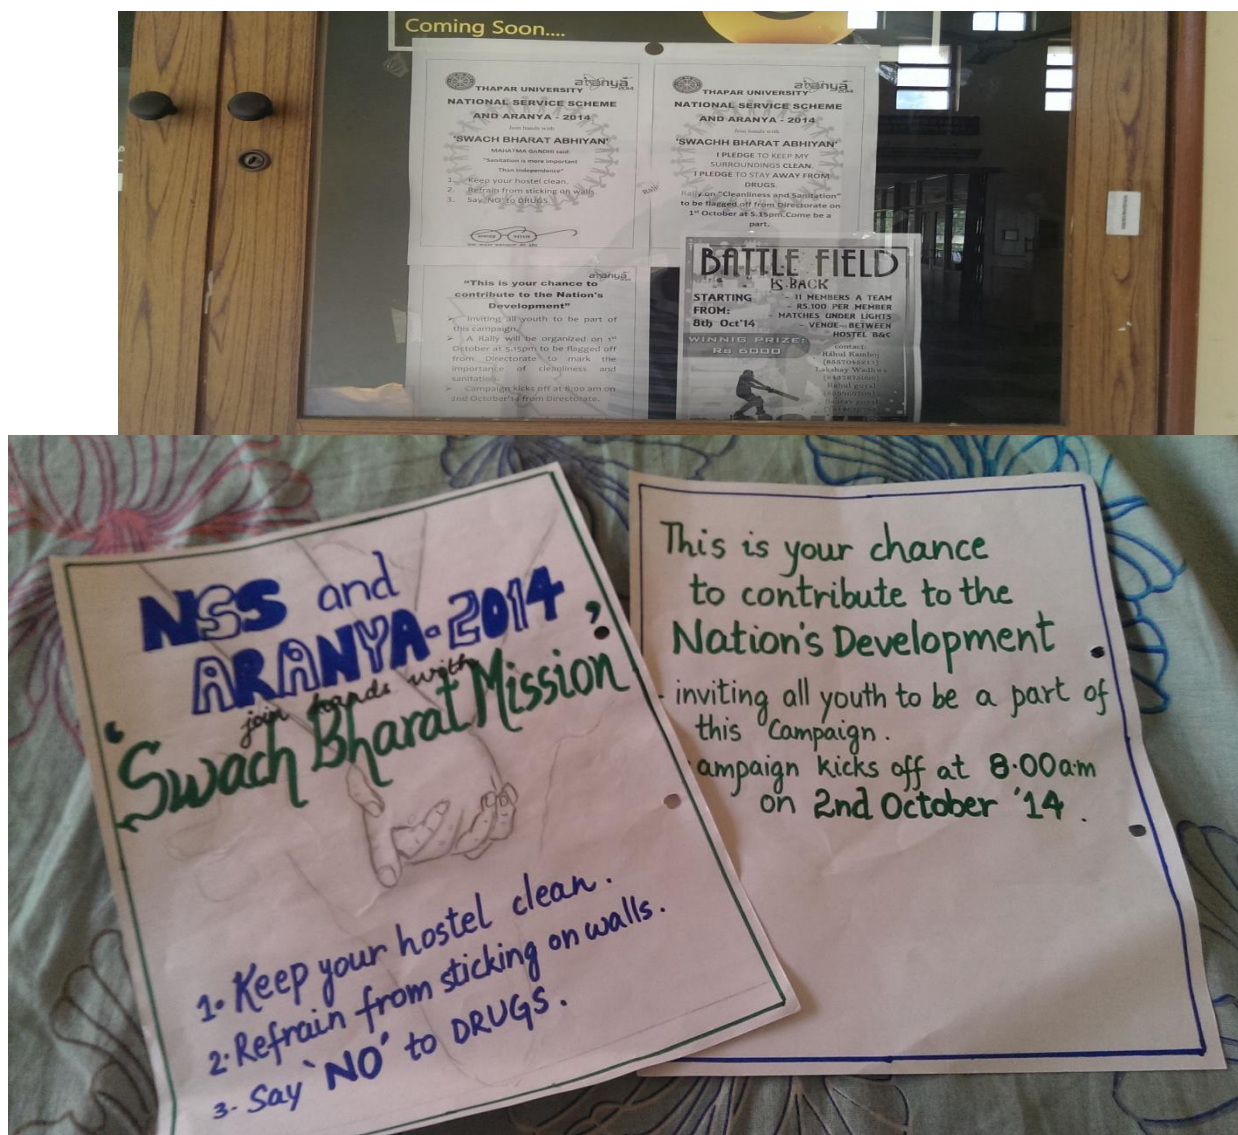 Coming Soon....
aranya
THAPAR UNIVERSITY
NATIONAL SERVICE SCHEME
AND ARANYA - 2014
join hands with
'SWACH BHARAT ABHIYAN'
MAHATMA GANDHI said:
"Sanitation is more important
Than Independence"
1. Keep your hostel clean.
2. Refrain from sticking on walls
3. Say 'NO' to DRUGS.
aranya
THAPAR UNIVERSITY
NATIONAL SERVICE SCHEME
AND ARANYA - 2014
join hands with
'SWACHH BHARAT ABHIYAN'
I PLEDGE TO KEEP MY
SURROUNDINGS CLEAN.
I PLEDGE TO STAY AWAY FROM
DRUGS.
Rally on "Cleanliness and Sanitation"
to be flagged off from Directorate on
1st October at 5.15pm.Come be a
part.
aranya
"This is your chance to
contribute to the Nation's
Development"
➢ Inviting all youth to be part of
this campaign.
➢ A Rally will be organized on 1st
October at 5.15pm to be flagged off
from Directorate to mark the
importance of cleanliness and
sanitation.
➢ Campaign kicks off at 8:00 am on
2nd October'14 from Directorate.
BATTLE FIELD
IS BACK
STARTING
FROM:
8th Oct'14
- 11 MEMBERS A TEAM
- RS.100 PER MEMBER
- MATCHES UNDER LIGHTS
- VENUE- BETWEEN
HOSTEL B&C
WINNIG PRIZE:
Rs 6000
contact:
Rahul Kamboj
Lakshay Wadhwa
Rahul goyal
NSS and
ARANYA-2014
join hands with
'Swach Bharat Mission'
1. Keep your hostel clean.
2. Refrain from sticking on walls.
3. Say 'NO' to DRUGS.
This is your chance
to contribute to the
Nation's Development
. inviting all youth to be a part of
this Campaign.
ampaign kicks off at 8.00am
on 2nd October '14.